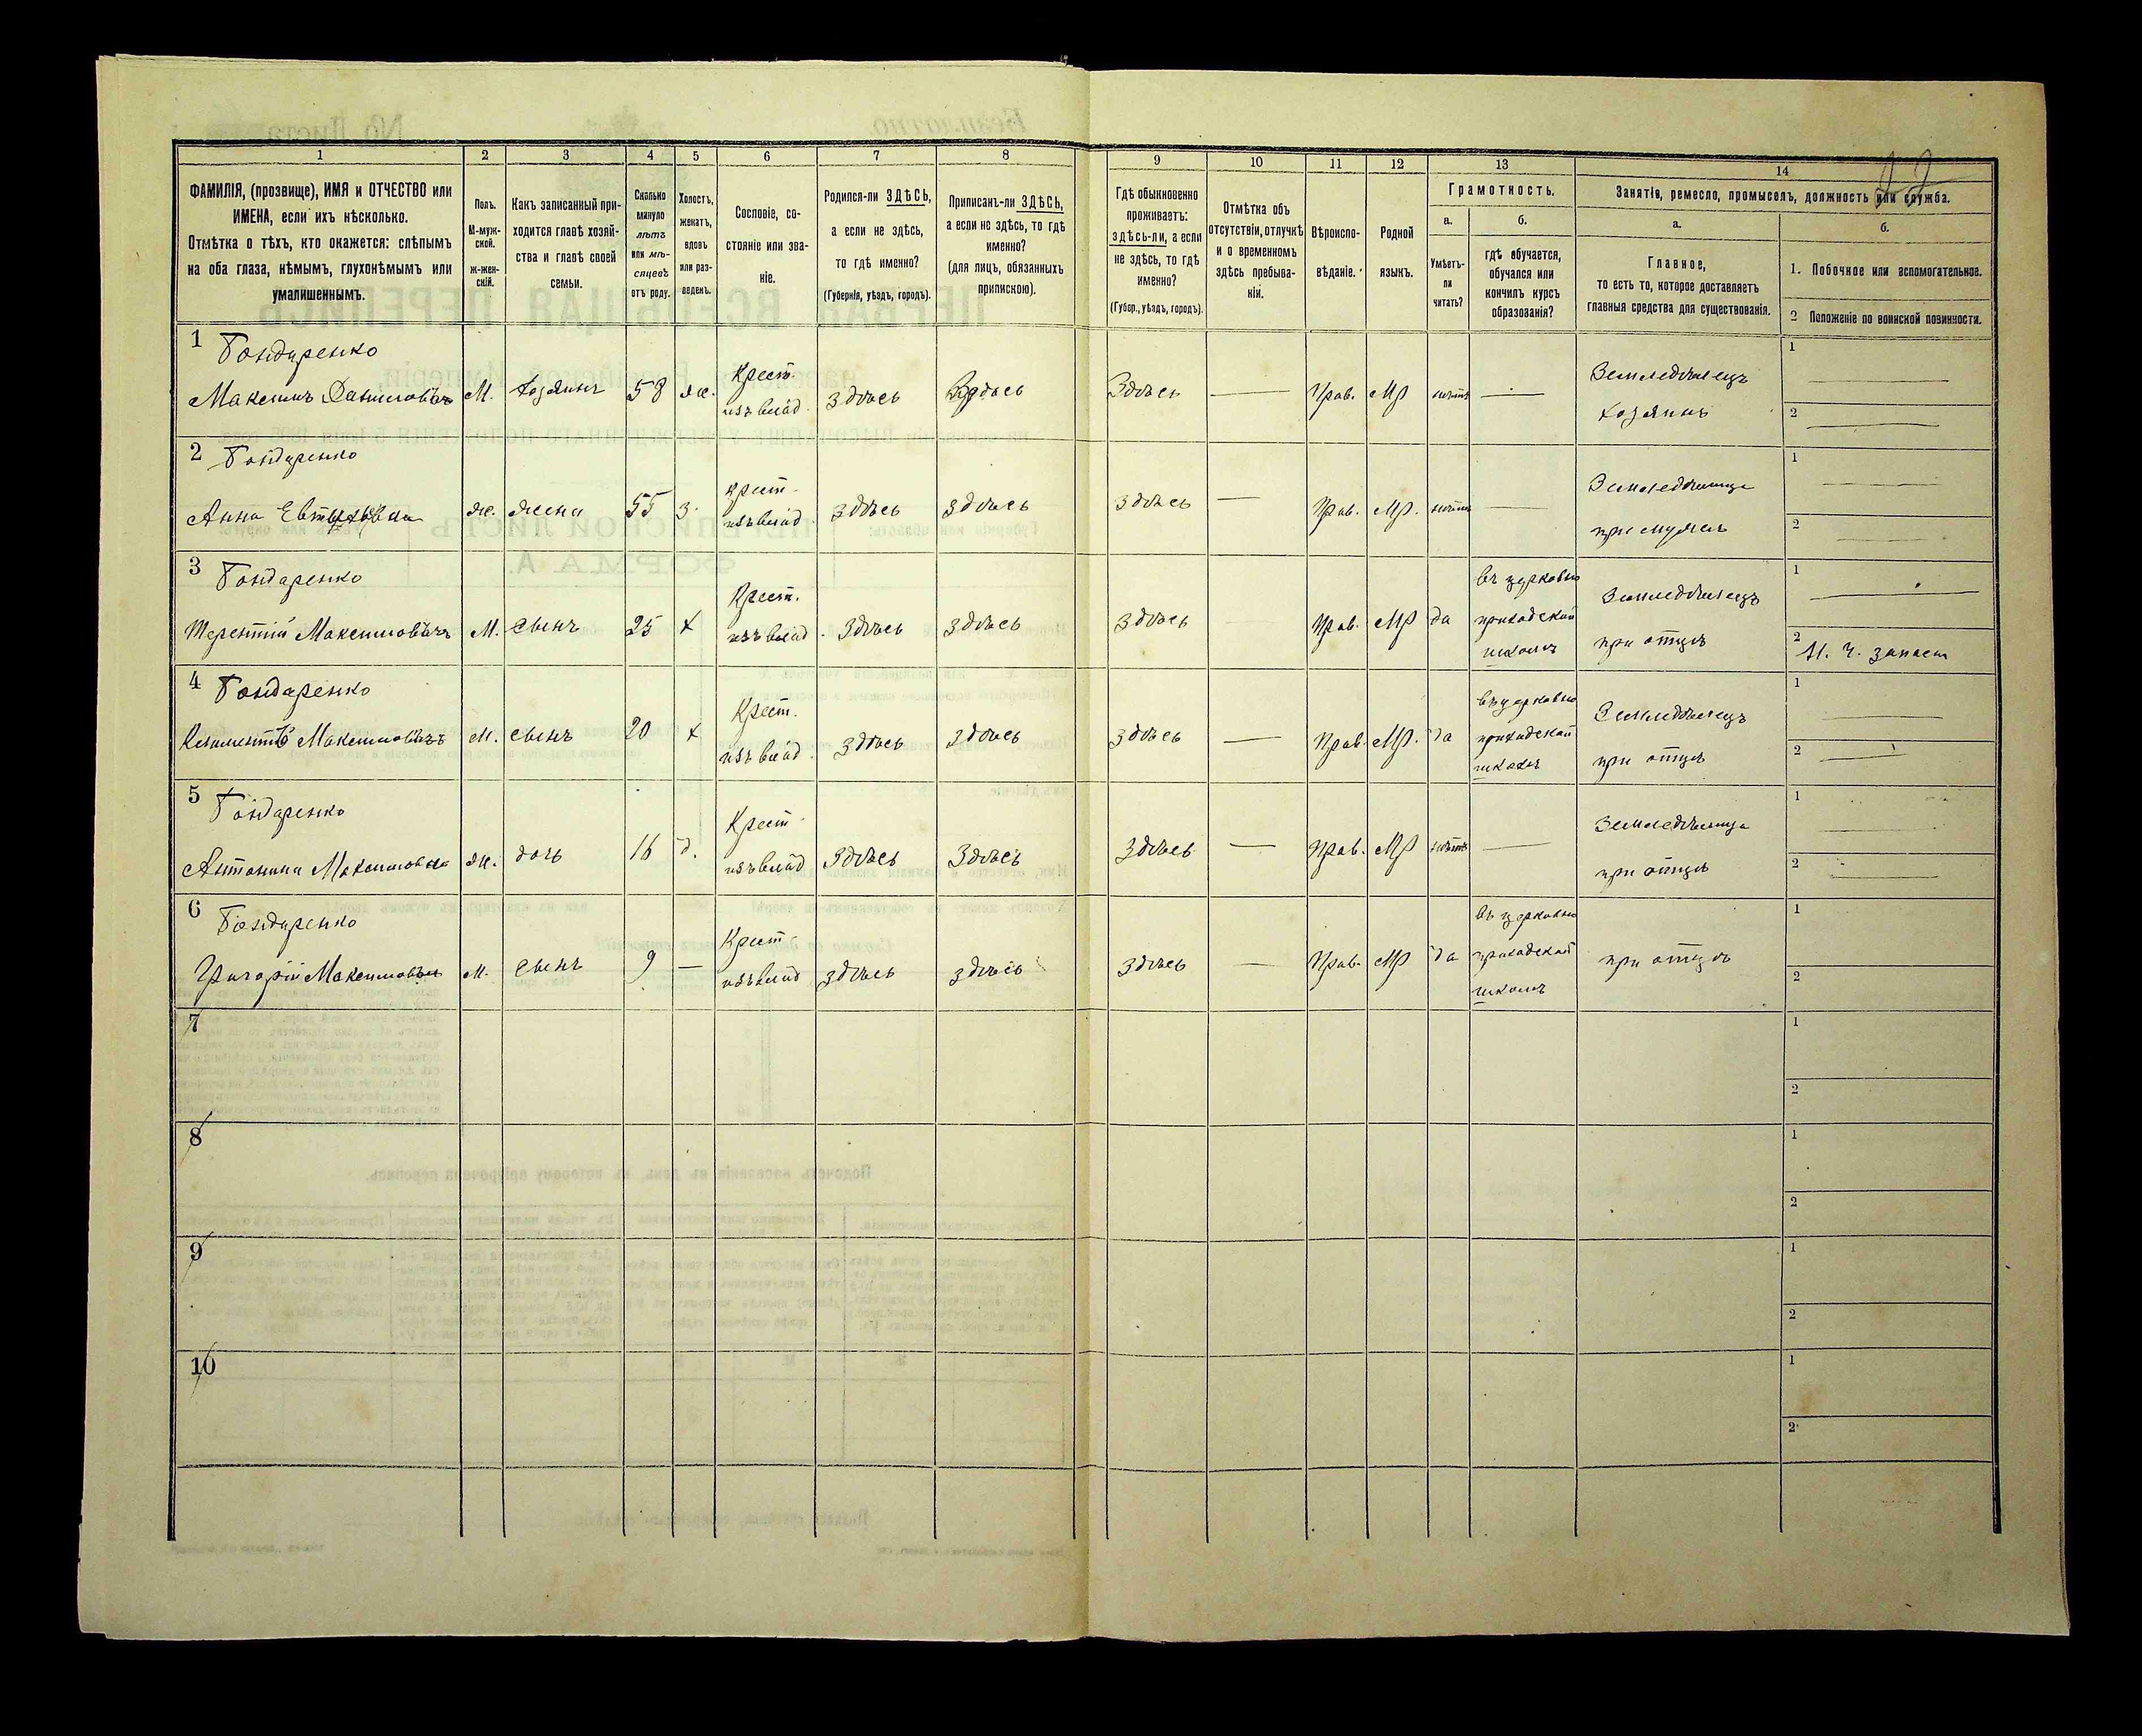 1 2 3 4 5 6 7 8 9 10 11 12 13 14
ФАМИЛІЯ, (прозвище), ИМЯ и ОТЧЕСТВО или
ИМЕНА, если ихъ нѣсколько.
Отмѣтка о тѣхъ, кто окажется: слѣпымъ
на оба глаза, нѣмымъ, глухонѣмымъ или
умалишеннымъ.
Полъ.
М-муж-
ской.
ж-жен-
скій.
Какъ записанный при-
ходится главѣ хозяй-
ства и главѣ своей
семьи.
Сколько
минуло
лѣтъ
или мѣ-
сяцевъ
отъ роду.
Холостъ,
женатъ,
вдовъ
или раз-
веденъ.
Сословіе, со-
стояніе или зва-
ніе.
Родился-ли ЗДѢСЬ,
а если не здѣсь,
то гдѣ именно?
(Губернія, уѣздъ, городъ).
Приписанъ-ли ЗДѢСЬ,
а если не здѣсь, то гдѣ
именно?
(для лицъ, обязанныхъ
припискою).
Гдѣ обыкновенно
проживаетъ:
здѣсь-ли, а если
не здѣсь, то гдѣ
именно?
(Губер., уѣздъ, городъ).
Отмѣтка объ
отсутствіи, отлучкѣ
и о временномъ
здѣсь пребыва-
ніи.
Вѣроиспо-
вѣданіе.
Родной
языкъ.
Грамотность.
а.
Умѣетъ-
ли
читать?
б.
гдѣ обучается,
обучался или
кончилъ курсъ
образованія?
Занятія, ремесло, промыселъ, должность или служба.
а.
Главное,
то есть то, которое доставляетъ
главныя средства для существованія.
б.
1. Побочное или вспомогательное.
2 Положеніе по воинской повинности.
1 Бондаренко
Максимъ Даниловичъ М. хозяинъ 58 ж. Крест. изъ влад. здѣсь здѣсь Здѣсь — Прав. Мр нѣтъ — Земледѣлецъ хозяинъ
1 —
2 —
2 Бондаренко
Анна Евтихіевна ж. жена 55 з. крест. изъ влад. здѣсь здѣсь здѣсь — Прав. Мр. нѣтъ — Земледѣлица при мужѣ
1 —
2 —
3 Бондаренко
Терентій Максимовичъ М. сынъ 25 х Крест. изъ влад. здѣсь здѣсь здѣсь Прав. Мр да въ церковно приходской школѣ Земледѣлецъ при отцѣ
1 —
2 М. Ч. запаса
4 Бондаренко
Климентій Максимовичъ М. сынъ 20 х Крест. изъ влад. здѣсь здѣсь здѣсь — Прав. Мр. да въ церковно приходской школѣ Земледѣлецъ при отцѣ
1 —
2 —
5 Бондаренко
Антонина Максимовна ж. дочь 16 д. Крест. изъ влад здѣсь Здѣсь здѣсь — Прав. Мр нѣтъ — Земледѣлица при отцѣ
1 —
2 —
6 Бондаренко
Григорій Максимовичъ М. сынъ 9 — Крест. изъ влад здѣсь здѣсь здѣсь — Прав. Мр да въ церковно приходской школѣ при отцѣ
1
2
7
1
2
8
1
2
9
1
2
10
1
2